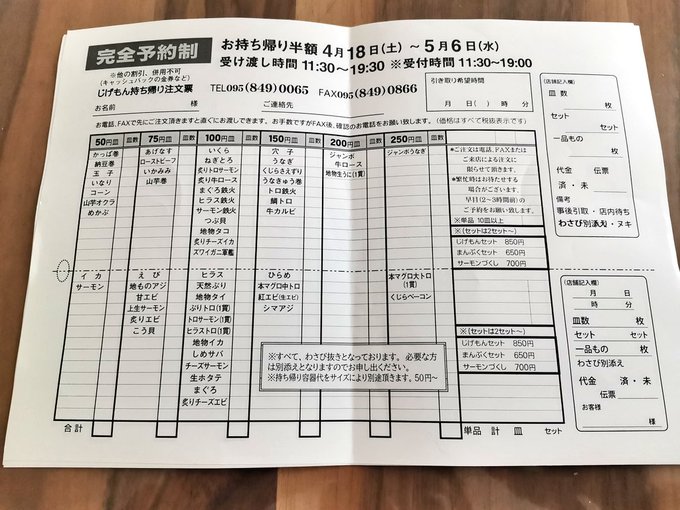 完全予約制
お持ち帰り半額 4月18日(土)～5月6日(水)
受け渡し時間 11:30～19:30 ※受付時間 11:30～19:00
※他の割引、併用不可
(キャッシュバックの金券など)
じげもん持ち帰り注文票
TEL095(849)0065 FAX095(849)0866
お名前 様 ご連絡先
引き取り希望時間
月 日( ) 時 分
お電話、FAXで先にご注文頂きますと直ぐにお渡しできます。お手数ですがFAX後、確認のお電話をお願い致します。(価格はすべて税抜表示です)
50円皿 皿数 75円皿 皿数 100円皿 皿数 150円皿 皿数 200円皿 皿数 250円皿 皿数
かっぱ巻
納豆巻
玉子
いなり
コーン
山芋オクラ
めかぶ
イカ
サーモン
あげなす
ローストビーフ
いかみみ
山芋巻
えび
地ものアジ
甘エビ
上生サーモン
炙りエビ
こう貝
いくら
ねぎとろ
炙りトロサーモン
炙り牛ロース
まぐろ鉄火
ヒラス鉄火
サーモン鉄火
つぶ貝
地物タコ
炙りチーズイカ
ズワイガニ軍艦
ヒラス
天然ぶり
地物タイ
ぶりトロ(1貫)
トロサーモン(1貫)
ヒラストロ(1貫)
地物イカ
しめサバ
チーズサーモン
生ホタテ
まぐろ
炙りチーズエビ
穴子
うなぎ
くじらさえずり
うなきゅう巻
トロ鉄火
鯛トロ
牛カルビ
ひらめ
本マグロ中トロ
紅エビ(生エビ)
シマアジ
ジャンボ
牛ロース
地物生うに(1貫)
ジャンボうなぎ
本マグロ大トロ
(1貫)
くじらベーコン
*ご注文は電話、FAXまたは
ご来店による注文に
限らせて頂きます。
*繁忙時はお待たせする
場合がございます。
早目(2～3時間前)の
ご予約をお願い致します。
※単品 10皿以上
※(セットは2セット～)
じげもんセット 850円
まんぷくセット 650円
サーモンづくし 700円
※(セットは2セット～)
じげもんセット 850円
まんぷくセット 650円
サーモンづくし 700円
※すべて、わさび抜きとなっております。必要な方
は別添えとなりますのでお申し出ください。
※持ち帰り容器代をサイズにより別途頂きます。50円～
合計 単品 計 皿 セット
(店舗記入欄)
皿数 枚
セット
セット
一品もの 枚
代金 伝票
済・未 枚
備考
事後引取・店内待ち
わさび別添え・ヌキ
(店舗記入欄)
月 日
時 分
皿数 枚
セット セット
一品もの 枚
わさび別添え
代金 済・未
伝票 枚
お客様
様